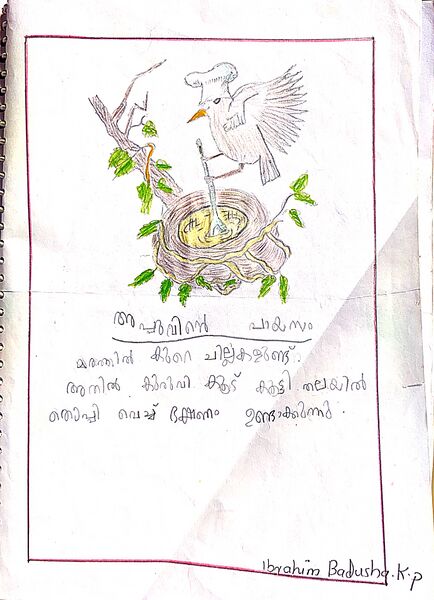 അപ്പുവിന്റെ പായസം
മരത്തിൽ കുറെ ചില്ലകളുണ്ട്.
അതിൽ കുരുവി കൂട് കൂട്ടി തലയിൽ
തൊപ്പി വെച്ച് ഭക്ഷണം ഉണ്ടാക്കുന്നു.
Ibrahim Badusha.K.p